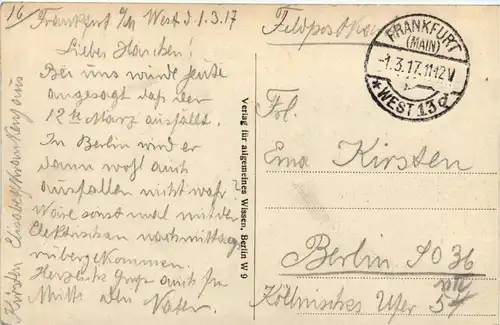 16/
Frankfurt a/M West d. 1.3.17
Liebes Hanchen!
Bei uns wurde heute
angesagt daß der
12te März ausfällt.
In Berlin wird er
dann wohl auch
ausfallen nicht wahr?
Wäre sonst mal mit der
Elektrischen nachmittag
rübergekommen.
Herzliche Grüße auch Fr.
Mitte dein Vater.
Kirsten Elisabethkrankenhaus
Verlag für allgemeines Wissen, Berlin W 9
Feldpostkarte
FRANKFURT
(MAIN)
-1.3.17.11-12V
* WEST 13 d *
Frl.
Erna Kirsten
Berlin SO 36
Köllnisches Ufer 54